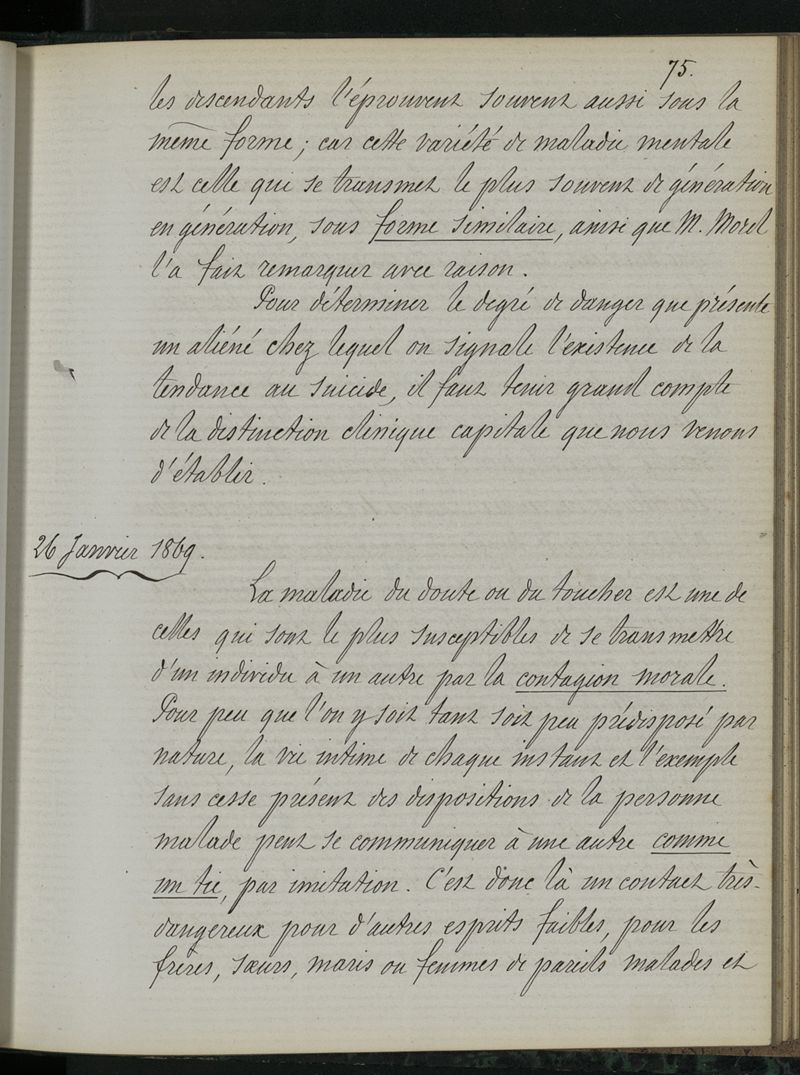 75.
les descendants l'éprouvent souvent aussi sous la
même forme ; car cette variété de maladie mentale
est celle qui se transmet le plus souvent de génération
en génération, sous forme similaire, ainsi que M. Morel
l'a fait remarquer avec raison.
Pour déterminer le degré de danger que présente
un aliéné chez lequel on signale l'existence de la
tendance au suicide, il faut tenir grand compte
de la distinction clinique capitale que nous venons
d'établir.
26 Janvier 1869.
La maladie du doute ou du toucher est une de
celles qui sont le plus susceptibles de se transmettre
d'un individu à un autre par la contagion morale.
Pour peu que l'on y soit tant soit peu prédisposé par
nature, la vie intime de chaque instant et l'exemple
sans cesse présent des dispositions de la personne
malade peut se communiquer à une autre comme
un tic, par imitation. C'est donc là un contact très-
dangereux pour d'autres esprits faibles, pour les
frères, sœurs, maris ou femmes de pareils malades et